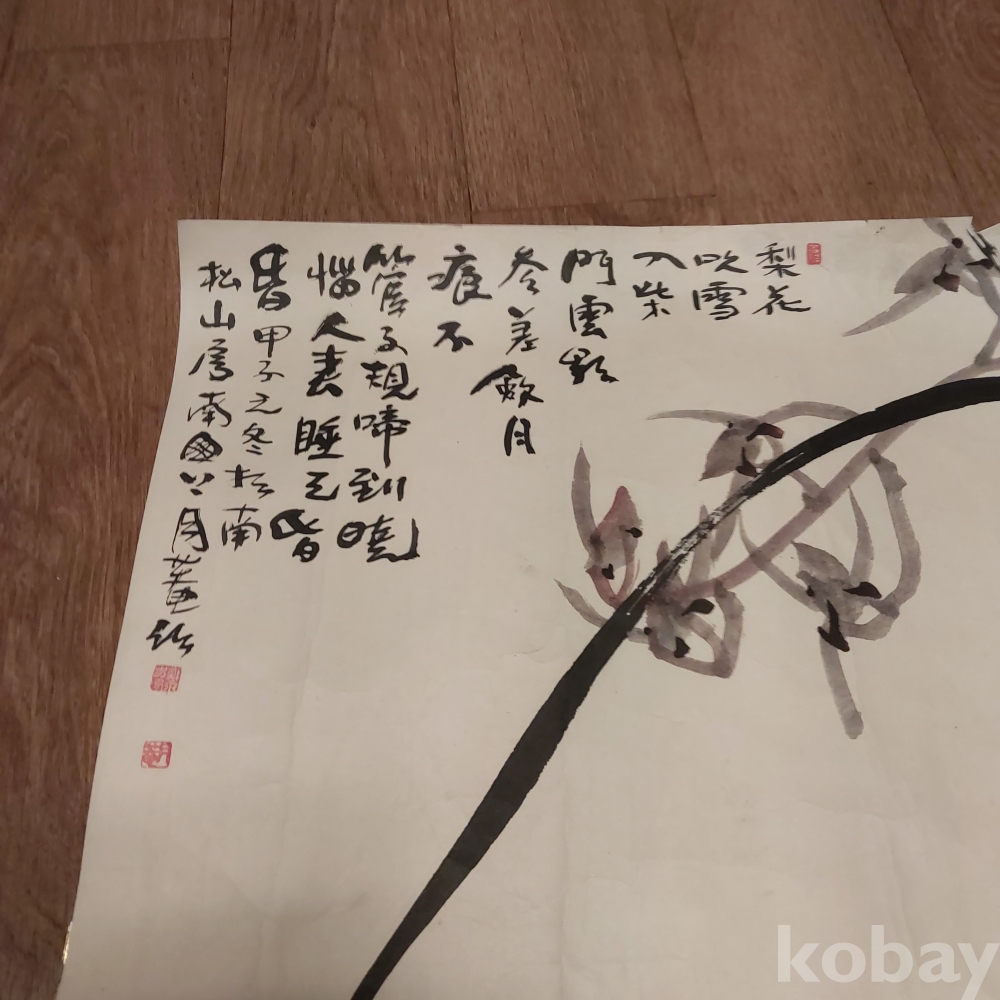 梨花
吹雪
入柴
門雲影
參差斂月
痕不
管子規啼到曉
惱人春睡已昏
昏甲子之冬於南
松山房南國
kobay